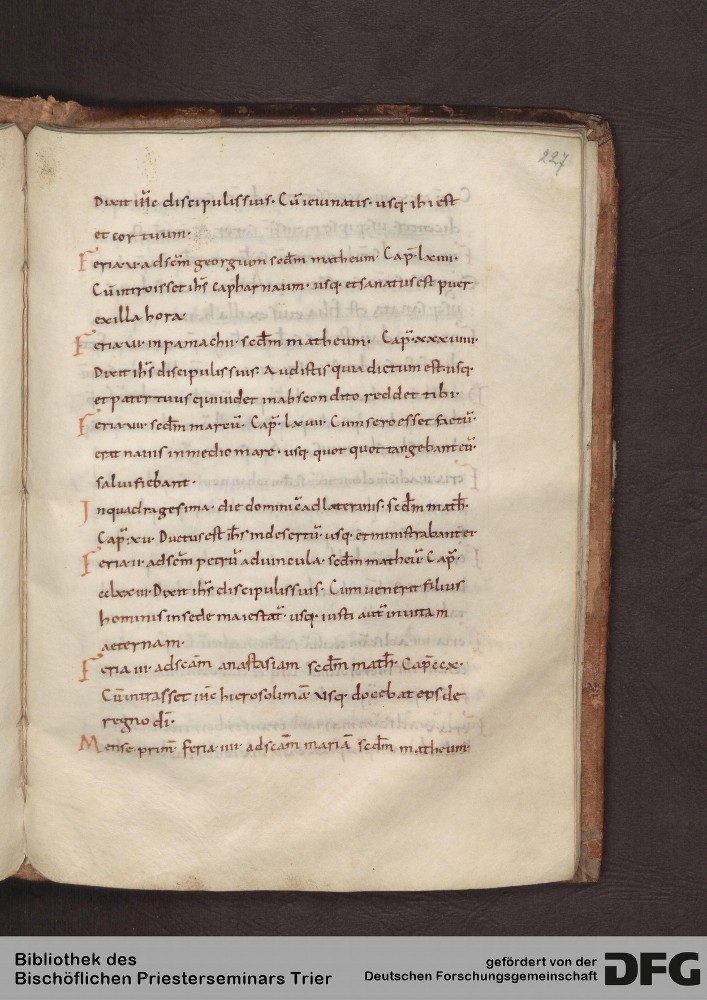 227
Dixit ihc discipulis suis. Cū ieiunatis. usq. ibi est
et cor tuum.
Feria .v. ad scm georgium scdm matheum. Cap. lxviiii.
Cū introisset ihs capharnaum. usq. et sanatus est puer
ex illa hora
Feria .vi. in pamachii. scdm matheum. Cap. xxxviiii.
Dixit ihs discipulis suis. Audistis quia dictum est. usq.
et pater tuus qui uidet in abscondito reddet tibi.
Feria .vii. scdm marcū. Cap. lxviii. Cum sero esset factū.
erat nauis in medio mare. usq. quot quot tangebant eū.
salui fiebant.
In quadragesima. die dominicā ad lateranis. scdm math.
Cap. xv. Ductus est ihs in desertū. usq. et ministrabant ei
Feria .ii. ad scm petrū ad uincula. scdm matheū Cap.
cclxxiii. Dixit ihs discipulis suis. Cum uenerit filius
hominis in sede maiestat. usq. iusti aut in uitam
aeternam.
Feria .iii. ad scam anastasiam scdm math. Cap. ccx.
Cū intrasset ihc hierosolimā usq. docebat eos de
regno dī.
Mense prim. feria .iiii. ad scam mariā scdm matheum.
Bibliothek des
Bischöflichen Priesterseminars Trier
gefördert von der
Deutschen Forschungsgemeinschaft
DFG